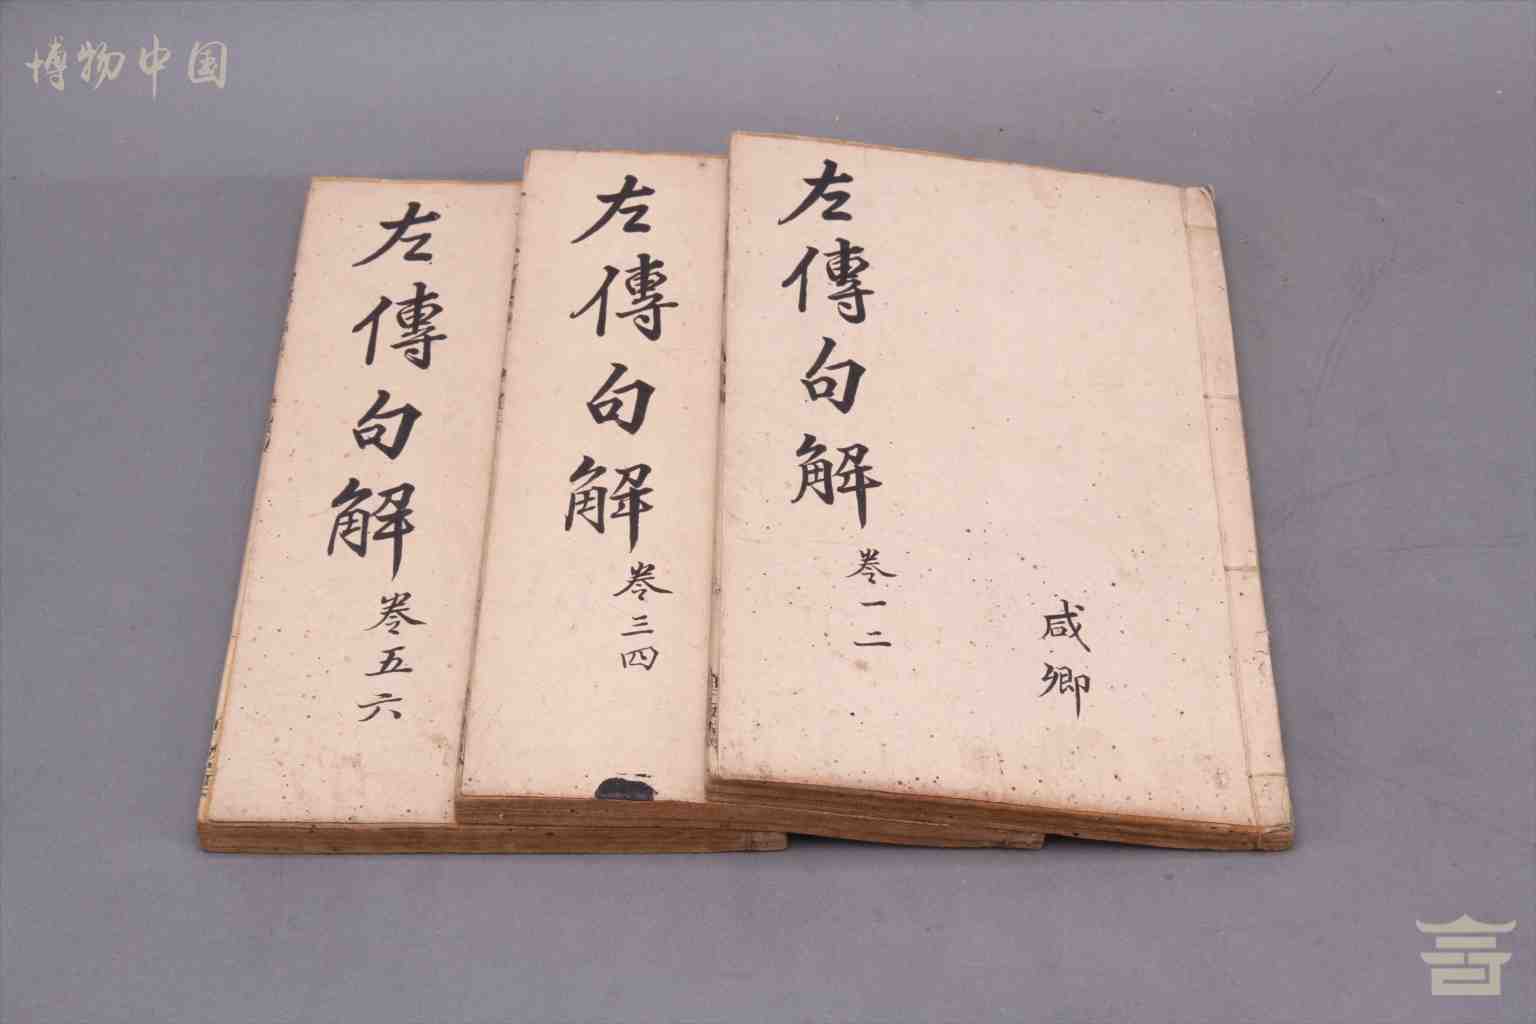 博物中国
左傳句解
卷一二
咸卿
左傳句解
卷三四
左傳句解
卷五六